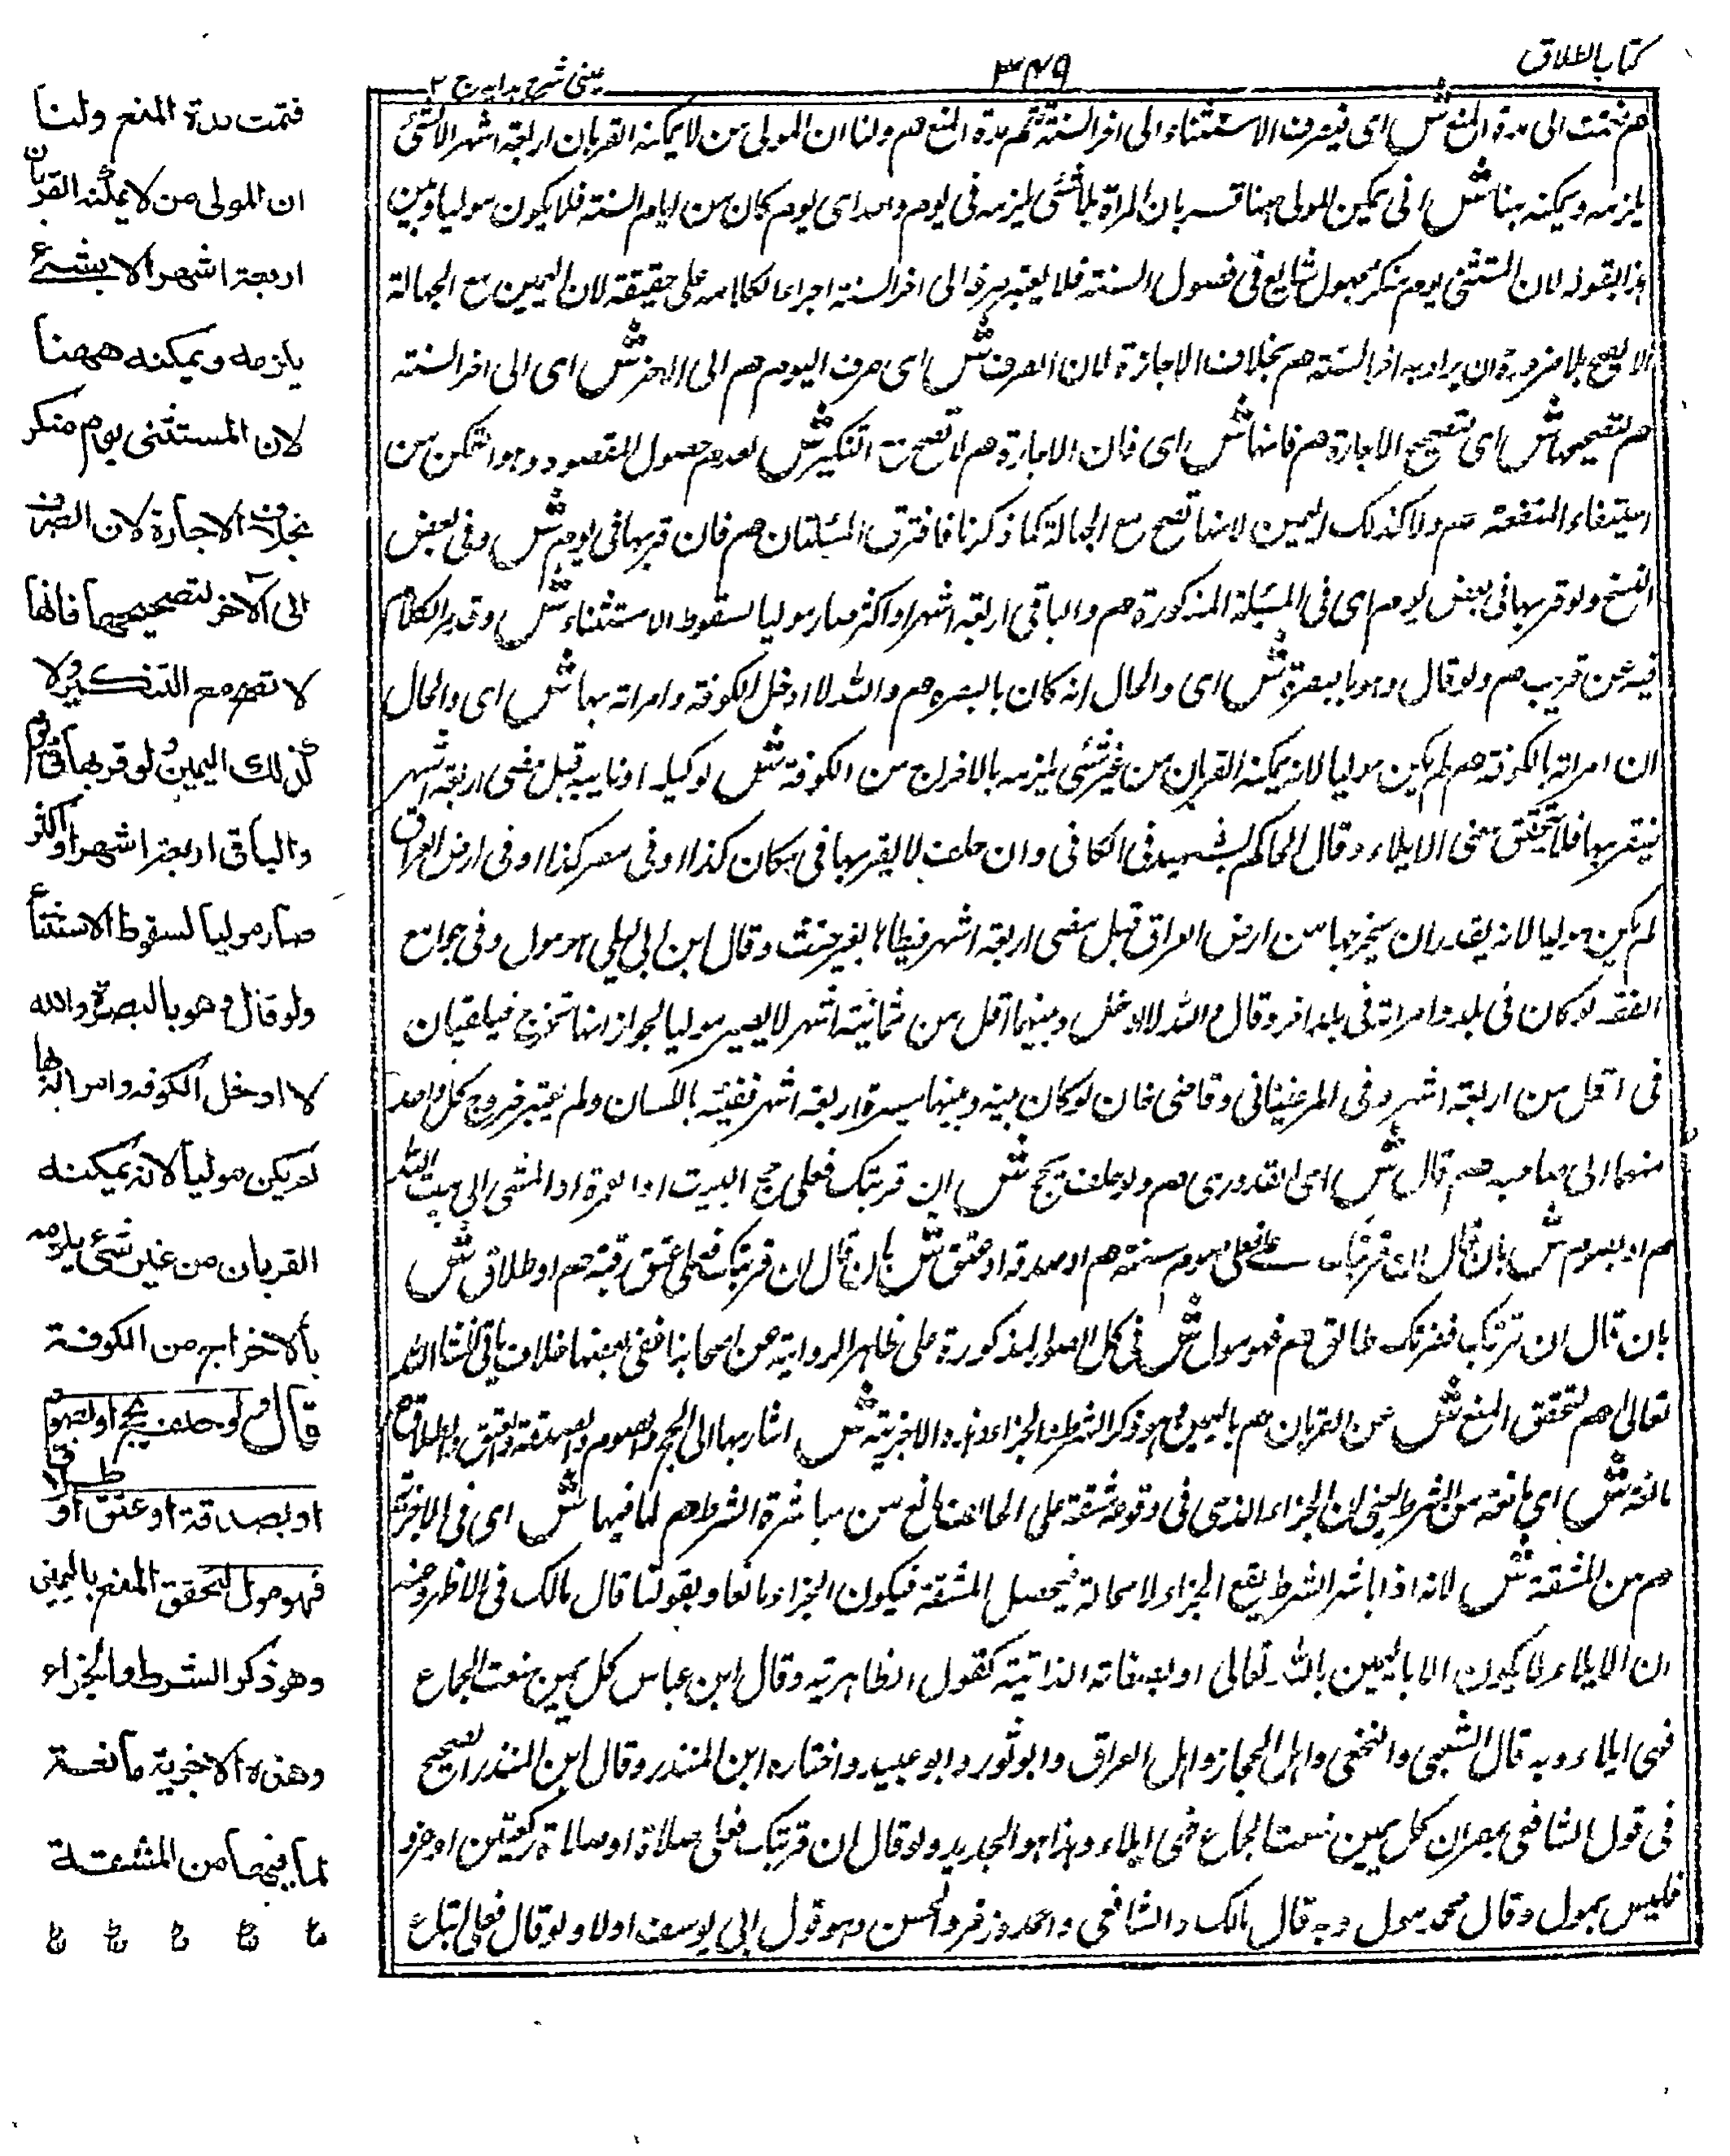 كتاب الطلاق
٣٤٩
عينى شرح هدايه ج ٢
هم فتمت الى مدة المنع ش اى فيصرف الاستثناء الى اخر السنة فتتم مدة المنع هم ولنا ان المولى من لا يمكنه القربان اربعة اشهر الا بشئ
يلزمه ويمكنه هنا ش اى يمكن للمولى هنا قربان المراة بلا شئ يلزمه فى يوم واحد اى يوم كان من ايام السنة فلا يكون موليا وبين
هذا بقوله لان المستثنى يوم منكر مجهول شايع فى فصول السنة فلا يعتبر صرفه الى اخر السنة اجراء لكلامه على حقيقته لان اليمين مع الجهالة
الا يصح بلا ضرورة ان يراد به اخر السنة هم بخلاف الاجازة لان الصرف ش اى صرف اليوم هم الى الاخر ش اى الى اخر السنة
هم لتصحيحها ش اى لتصحيح الاجارة هم فانها ش اى فان الاجارة هم لا تصح مع التنكير ش لعدم حصول المقصود وهو التمكن من
استيفاء المنفعة هم ولا كذلك اليمين لانها تصح مع الجهالة كما ذكرنا فافترق المسئلتان هم فان قربها فى يوم ش وفى بعض
النسخ ولو قربها فى بعض يوم اى فى المسئلة المذكورة هم والباقى اربعة اشهر او اكثر صار موليا لسقوط الاستثناء ش وقد مر الكلام
فيه عن قريب هم ولو قال وهو بالبصرة ش اى والحال انه كان بالبصره هم والله لا ادخل الكوفة وامراته بها ش اى والحال
ان امراته بالكوفة هم لم يكن موليا لانه يمكنه القربان من غير شئى يلزمه بالاخراج من الكوفة ش لوكيله او نايبه قبل مضى اربعة اشهر
فيقربها فلا يتحقق معنى الايلاء وقال الحاكم الشهيد فى الكافى وان حلف لا يقربها فى مكان كذا او فى مصر كذا او فى ارض العراق
لم يكن موليا لانه يقدر ان يخرجها من ارض العراق قبل مضى اربعة اشهر فيطاها بغير حنث وقال ابن ابى ليلى هو مول وفى جوامع
الفقه لو كان فى بلد وامراته فى بلد اخر وقال والله لا ادخل وبينهما اقل من ثمانية اشهر لا يصير موليا لجواز انها تخرج فيلتقيان
فى اقل من اربعة اشهر وفى المرغينانى وقاضى خان لو كان بينه وبينها مسيرة اربعة اشهر ففيئه باللسان ولم يعتبر خروج كل واحد
منهما الى صاحبه هم قال ش اى القدورى هم ولو حلف بحج ش ان قربتك فعلى حج البيت او العمرة او المشى الى بيت الله
هم او بصوم ش بان قال ان قربتك فعلى صوم سنة هم او صدقة او عتق ش بان قال ان قربتك فعلى عتق رقبة هم او طلاق ش
بان قال ان قربتك فضرتك طالق هم فهو مول ش فى كل الصور المذكورة على ظاهر الرواية عن اصحابنا ففى بعضها خلاف ياتى انشاء الله
تعالى هم لتحقق المنع ش عن القربان هم باليمين وهو ذكر الشرط والجزاء وهذه الاجزية ش اشار بها الى الحج والصوم والصدقة والعتق والطلاق هم
مانعة ش اى مانعة من الشرط يعنى لان الجزاء الذى فى وقوعه مشقة على الحالف مانع من مباشرة الشرط هم لما فيها ش اى فى الاجزية
هم من المشقة ش لانه اذا باشر الشرط يقع الجزاء لا محالة فيحصل المشقة فيكون الجزاء مانعا وبقولنا قال مالك فى الاظهر وعنه
ان الايلاء لا يكون الا باليمين بالله تعالى او بصفاته الذاتية كقول الظاهرية وقال ابن عباس كل يمين منعت الجماع
فهى ايلاء وبه قال الشعبى والنخعى واهل الحجاز واهل العراق وابو ثور وابو عبيد واختاره ابن المنذر وقال ابن المنذر الصحيح
فى قول الشافعى بمصر ان كل يمين منعت الجماع فهى ايلاء وهذا هو الجديد ولو قال ان قربتك فعلى صلاة او صلاة ركعتين او غزو
فليس بمول وقال محمد مول وبه قال مالك والشافعى واحمد وزفر والحسن وهو قول ابى يوسف اولا ولو قال فعلى اتباع
فتمت مدة المنع ولنا
ان المولى من لا يمكنه القربان
اربعة اشهر الا بشئ
يلزمه ويمكنه ههنا
لان المستثنى يوم منكر
بخلاف الاجارة لان الصرف
الى الآخر لتصحيحها فانها
لا تصح مع التنكير ولا
كذلك اليمين ولو قربها فى يوم
والباقى اربعة اشهر او اكثر
صار موليا لسقوط الاستثناء
ولو قال وهو بالبصرة والله
لا ادخل الكوفه وامراته بها
لم يكن موليا لانه يمكنه
القربان من غير شئ يلزمه
بالاخراج من الكوفة
قال ولو حلف بحج او بصوم
او بصدقة او عتق او طلاق
فهو مول لتحقق المنع باليمين
وهو ذكر الشرط والجزاء
وهذه الاجزية مانعة
لما فيها من المشقة